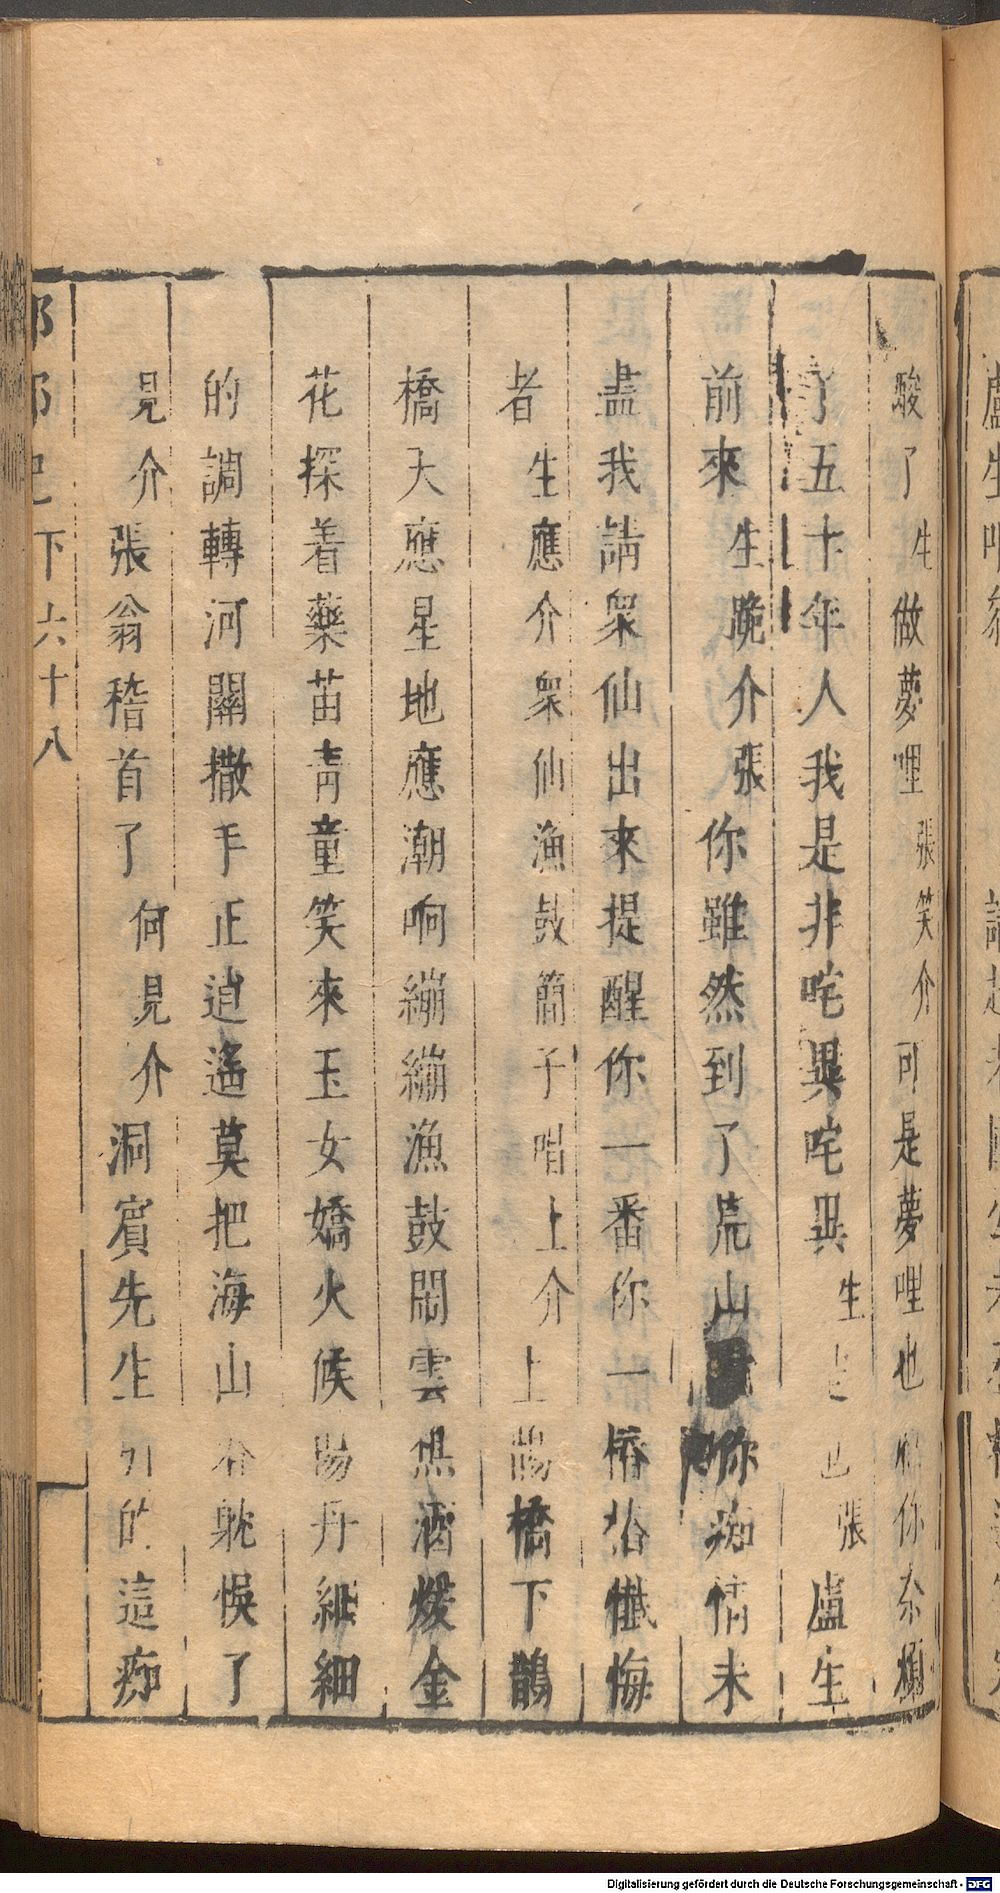 盧生
駿了生做夢哩張笑介可是夢哩也你奈煩
了五十年人我是非咤異咤異生張盧生
前來生跪介張你雖然到了荒山你痴情未
盡我請衆仙出來提醒你一番你一樁樁懺悔
者生應介衆仙漁鼓簡子唱上介上
橋下鵲
橋天應星地應潮响繃繃漁鼓鬧雲樵酒煖金
花探着藥苗青童笑來玉女嬌火候傷丹細細
的調轉河關撒手正逍遙莫把海山眈悞了
見介張翁稽首了何見介洞賓先生引的這痴
邯鄲記下六十八
Digitalisierung gefördert durch die Deutsche Forschungsgemeinschaft - DFG